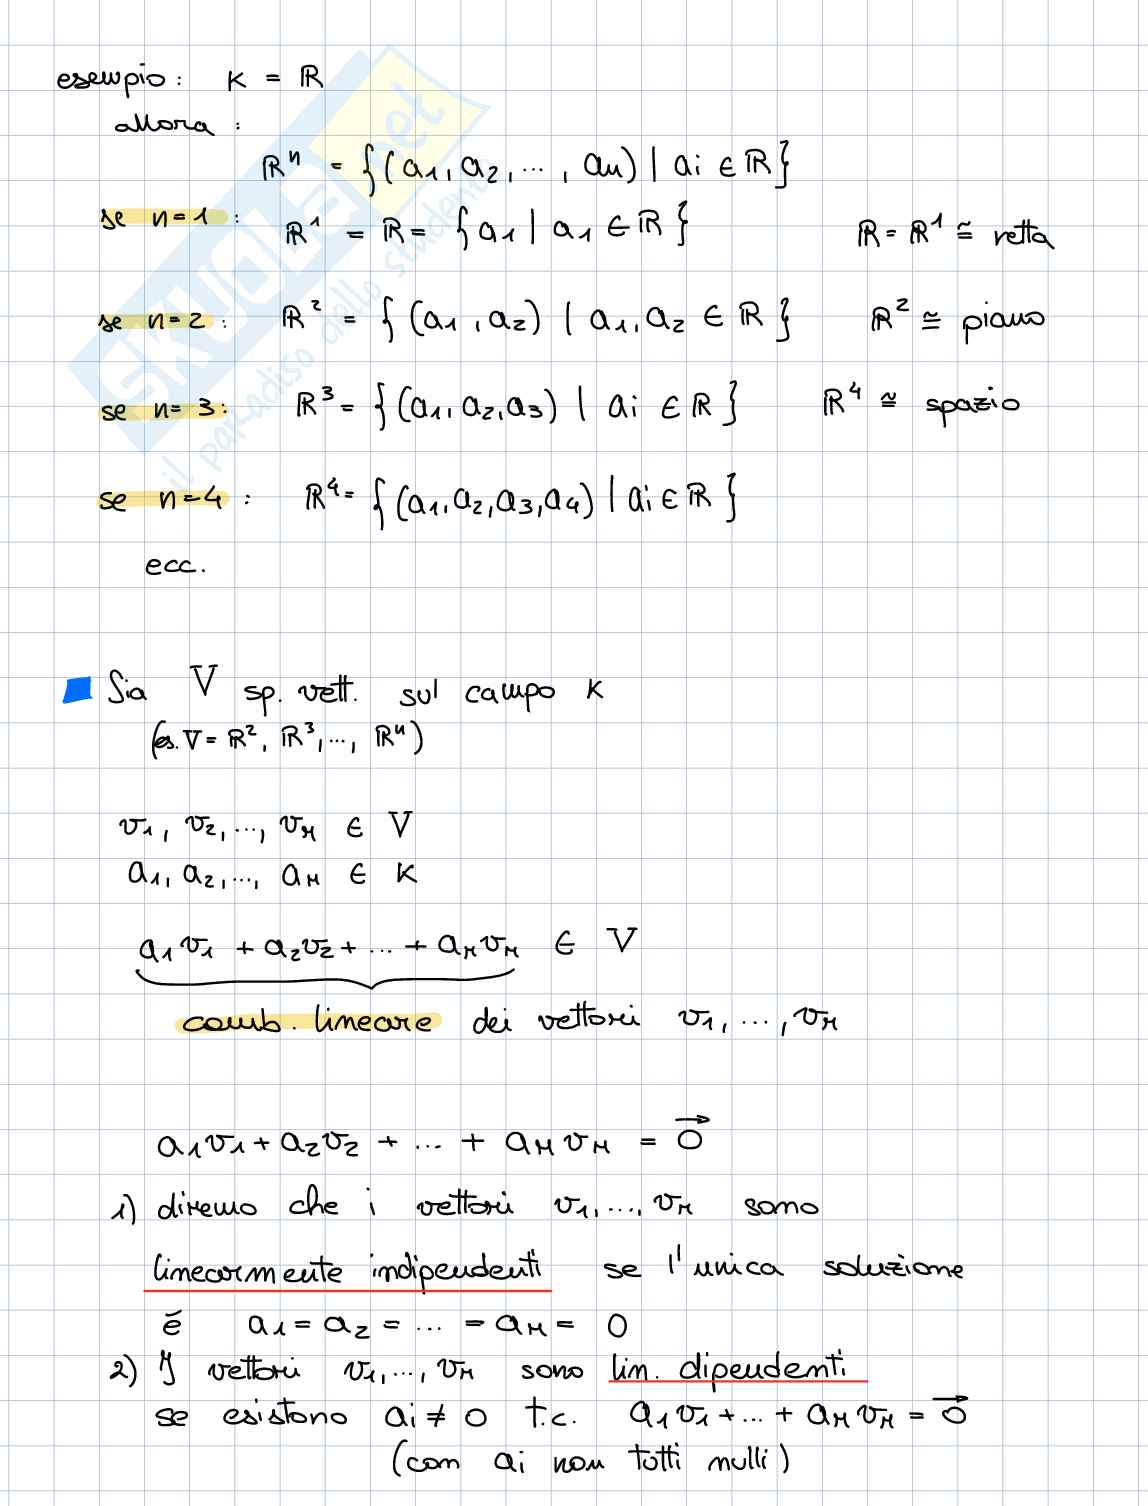 esempio: K = ℝ
allora:
ℝⁿ = {(a₁, a₂, ..., aₙ) | aᵢ ∈ ℝ}
se n=1: ℝ¹ = ℝ = {a₁ | a₁ ∈ ℝ} ℝ = ℝ¹ ≅ retta
se n=2: ℝ² = {(a₁, a₂) | a₁, a₂ ∈ ℝ} ℝ² ≅ piano
se n=3: ℝ³ = {(a₁, a₂, a₃) | aᵢ ∈ ℝ} ℝ⁴ ≅ spazio
se n=4: ℝ⁴ = {(a₁, a₂, a₃, a₄) | aᵢ ∈ ℝ}
ecc.
SKUOLA.net
il paradiso dello studente
Sia V sp. vett. sul campo K
(es. V = ℝ², ℝ³, ..., ℝⁿ)
v₁, v₂, ..., vₘ ∈ V
a₁, a₂, ..., aₘ ∈ K
a₁v₁ + a₂v₂ + ... + aₘvₘ ∈ V
comb. lineare dei vettori v₁, ..., vₘ
a₁v₁ + a₂v₂ + ... + aₘvₘ = 0⃗
1) diremo che i vettori v₁, ..., vₘ sono
linearmente indipendenti se l'unica soluzione
è a₁ = a₂ = ... = aₘ = 0
2) I vettori v₁, ..., vₘ sono lin. dipendenti
se esistono aᵢ ≠ 0 t.c. a₁v₁ + ... + aₘvₘ = 0⃗
(con aᵢ non tutti nulli)